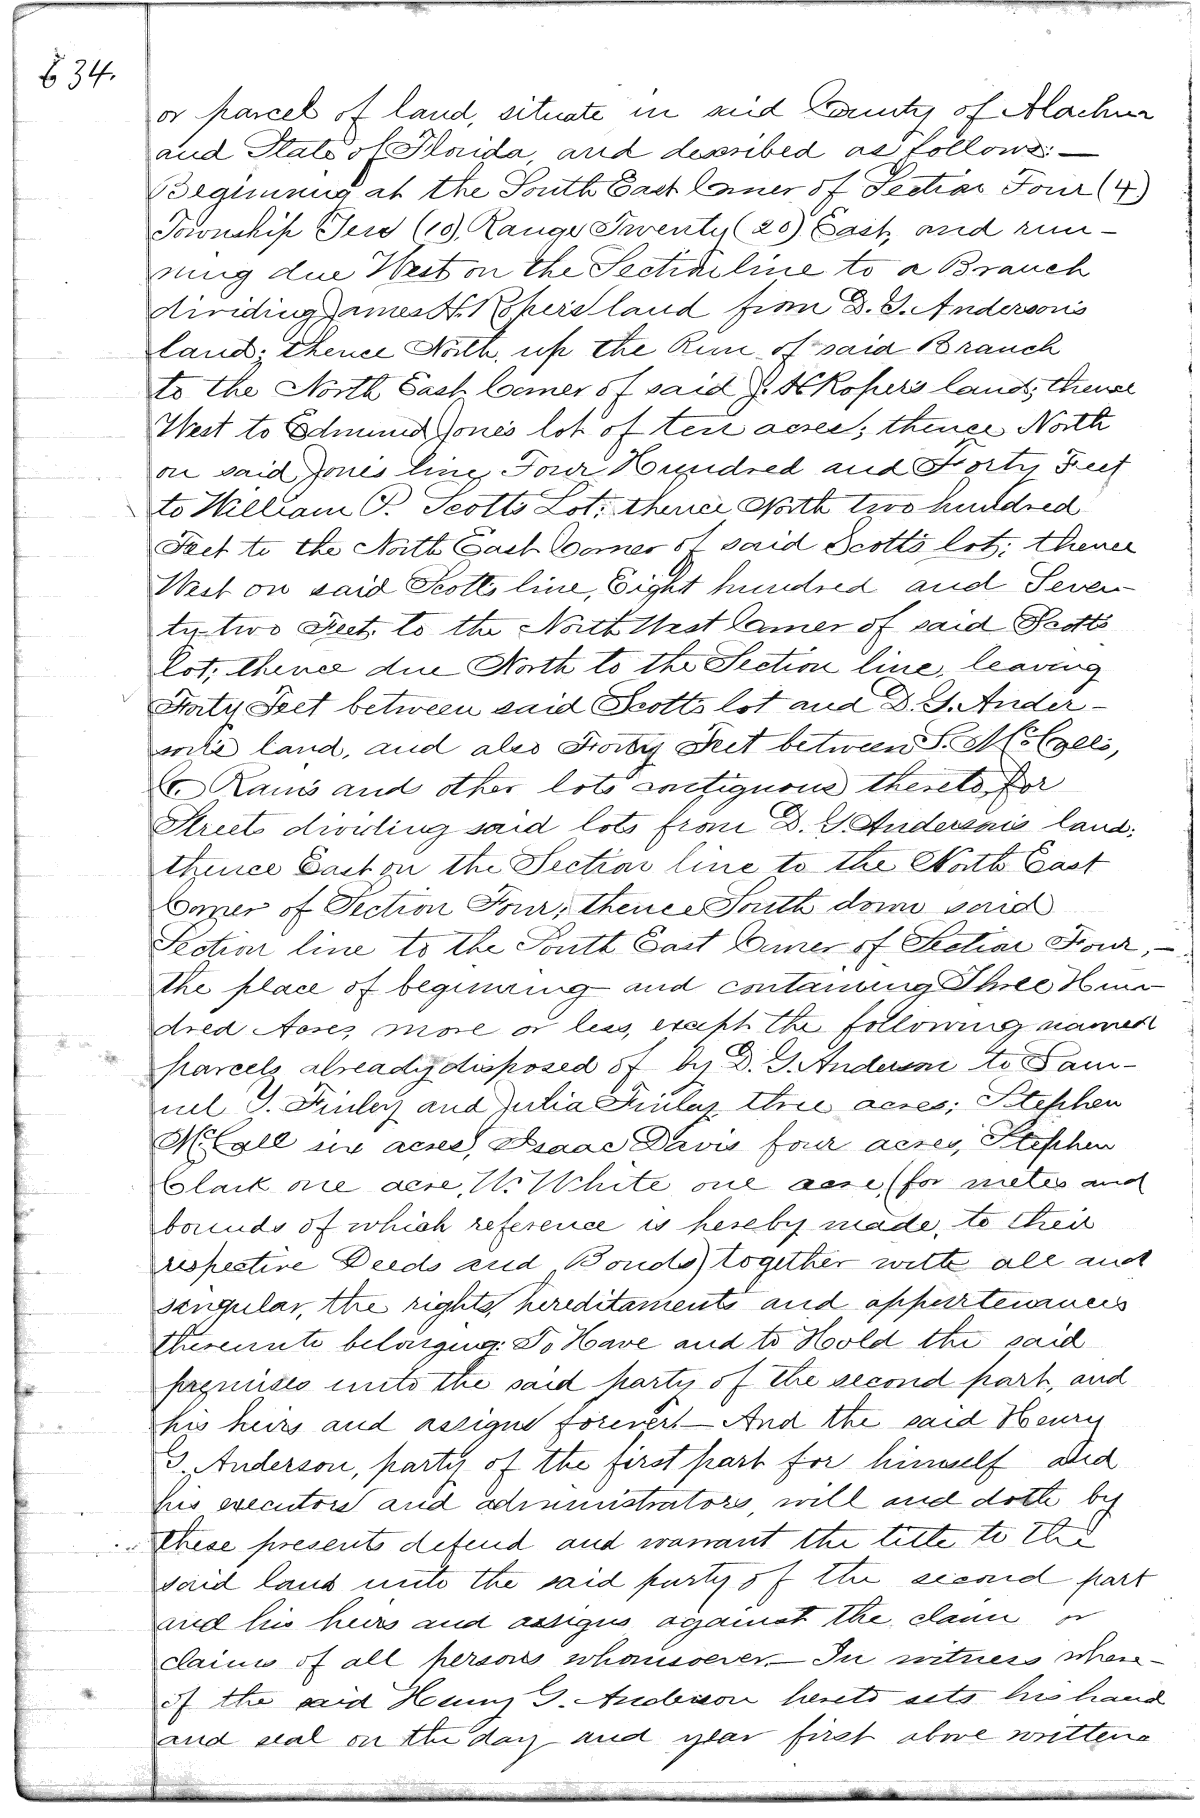 634.
or parcel of land, situate in said County of Alachua
and State of Florida, and described as follows:—
Beginning at the South East Corner of Section Four (4)
Township Ten (10), Range Twenty (20) East, and run-
ning due West on the Section line to a Branch
dividing James H. Roper's land from D. G. Anderson's
land; thence North, up the Run of said Branch
to the North East Corner of said J. H. Roper's land; thence
West to Edmund Jones lot of ten acres; thence North
on said Jones line, Four Hundred and Forty Feet
to William P. Scott's Lot; thence North two hundred
Feet to the North East Corner of said Scott's lot; thence
West on said Scott's line, Eight hundred and Seven-
ty two Feet, to the North West Corner of said Scott's
lot; thence due North to the Section line, leaving
Forty Feet between said Scott's lot and D. G. Ander-
son's land, and also Forty Feet between S. McCall's,
Rains and other lots contiguous thereto, for
Streets dividing said lots from D. G. Anderson's land;
thence East on the Section line to the North East
Corner of Section Four; thence South down said
Section line to the South East Corner of Section Four,—
the place of beginning and containing Three Hun-
dred Acres, more or less, except the following named
parcels already disposed of by D. G. Anderson to Sam-
uel Y. Finley and Julia Finley three acres; Stephen
McCall six acres, Isaac Davis four acres, Stephen
Clark one acre, W. White one acre, (for metes and
bounds of which reference is hereby made, to their
respective Deeds and Bonds) together with all and
singular, the rights, hereditaments and appurtenances
thereunto belonging: To Have and to Hold the said
premises unto the said party of the second part, and
his heirs and assigns forever.— And the said Henry
G. Anderson, party of the first part for himself and
his executors and administrators, will and doth by
these presents defend and warrant the title to the
said land unto the said party of the second part
and his heirs and assigns against the claim or
claims of all persons whomsoever.— In witness where-
of the said Henry G. Anderson hereto sets his hand
and seal on the day and year first above written